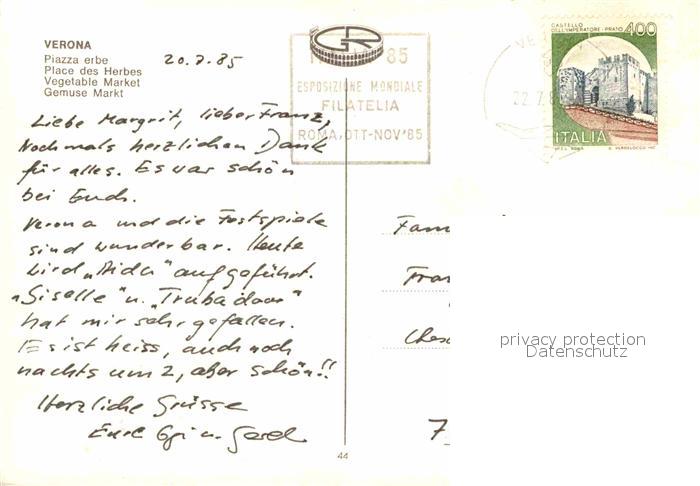 VERONA
Piazza erbe
Place des Herbes
Vegetable Market
Gemuse Markt
20.7.85
Liebe Margrit, lieber Franz,
Nochmals herzlichen Dank
für alles. Es war schön
bei Euch.
Verona und die Festspiele
sind wunderbar. Heute
wird „Aida" aufgeführt.
„Giselle" u. „Trubadoor"
hat mir sehr gefallen.
Es ist heiss, auch noch
nachts um 2, aber schön!!
Herzliche Grüsse
44
85
ESPOSIZIONE MONDIALE
FILATELIA
ROMA, OTT-NOV'85
22.7.8
CASTELLO
DELL'IMPERATORE - PRATO
400
ITALIA
Fam
Fran
7
privacy protection
Datenschutz